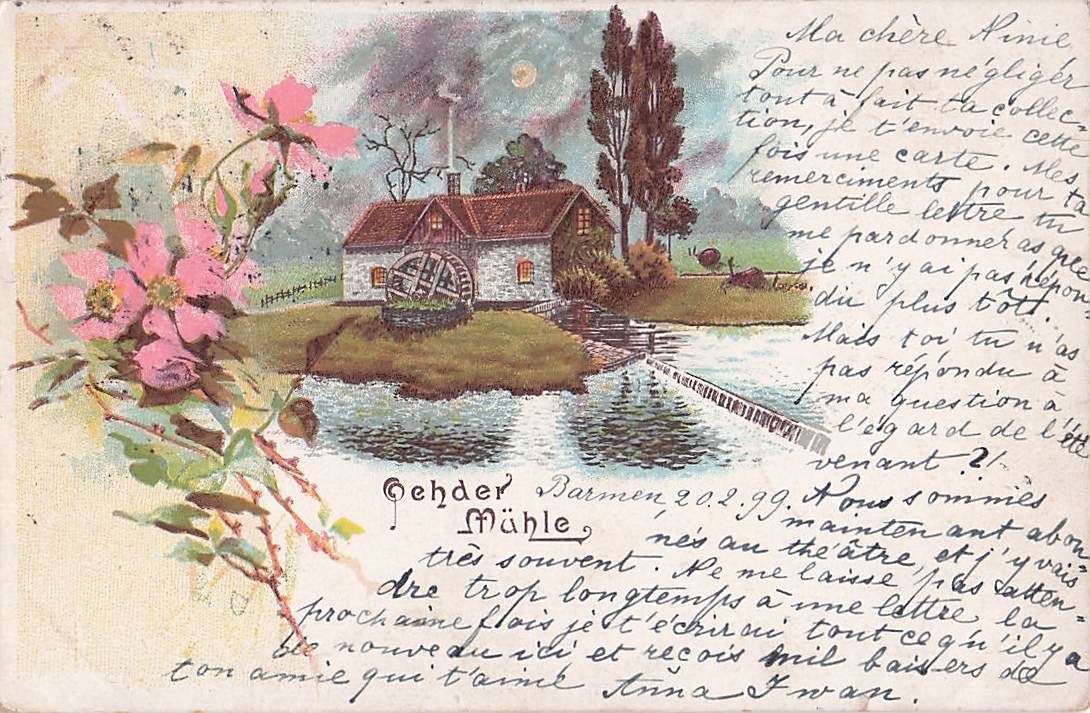 Ma chère Ninie
Pour ne pas négligér
tout à fait ta collec-
tion, je t'envoie cette
fois une carte. Mes
remerciments pour ta
gentille lettre tu
me pardonneras que
je n'y ai pas répon
du plus tôt.
Mais toi tu n'as
pas répondu à
ma question à
l'égard de l'été
venant?!
Oehder
Mühle
Barmen, 20.2.99. Nous sommes
maintenant abon-
nés au théâtre, et j'y vais
très souvent. Ne me laisse pas atten-
dre trop longtemps à une lettre la
prochaine fois je t'écrirai tout ce qu'il y a
de nouveau ici et reçois mil baisers de
ton amie qui t'aime Anna Iwan.